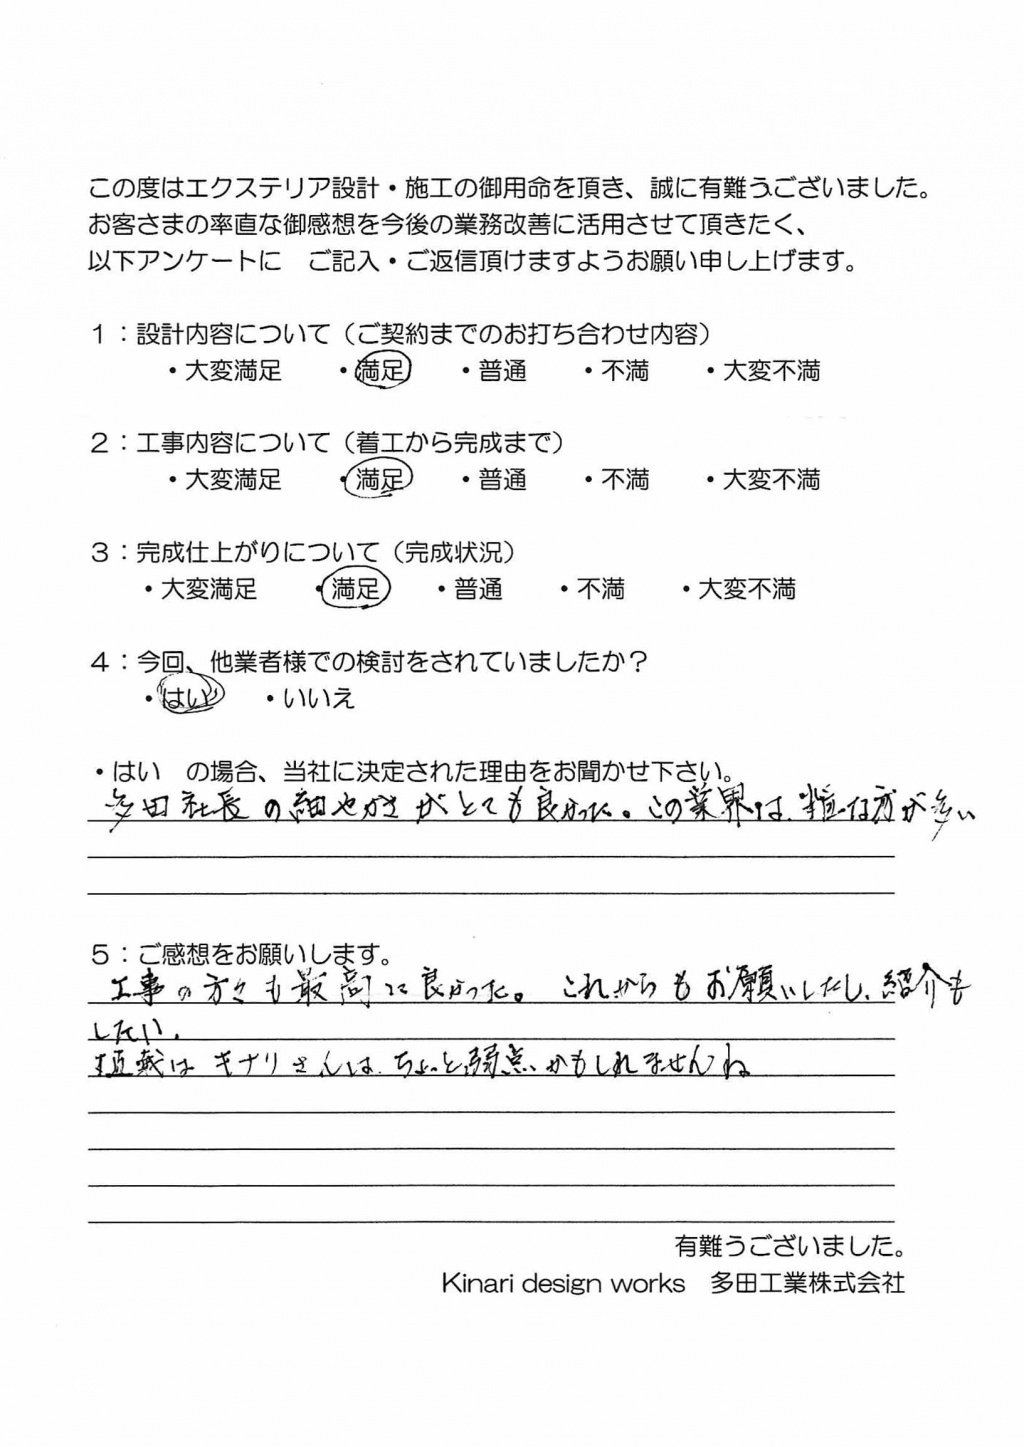 この度はエクステリア設計・施工の御用命を頂き、誠に有難うございました。
お客さまの率直な御感想を今後の業務改善に活用させて頂きたく、
以下アンケートに　ご記入・ご返信頂けますようお願い申し上げます。
1：設計内容について（ご契約までのお打ち合わせ内容）
・大変満足　・満足　・普通　・不満　・大変不満
2：工事内容について（着工から完成まで）
・大変満足　・満足　・普通　・不満　・大変不満
3：完成仕上がりについて（完成状況）
・大変満足　・満足　・普通　・不満　・大変不満
4：今回、他業者様での検討をされていましたか？
・はい　・いいえ
・はい　の場合、当社に決定された理由をお聞かせ下さい。
多田社長の細やかさがとても良かった。この業界は、な方が多い
5：ご感想をお願いします。
工事の方々も最高に良かった。これからもお願いしたし、紹介も
したい。
植栽はキナリさんは、ちょっと弱点かもしれませんね
有難うございました。
Kinari design works　多田工業株式会社